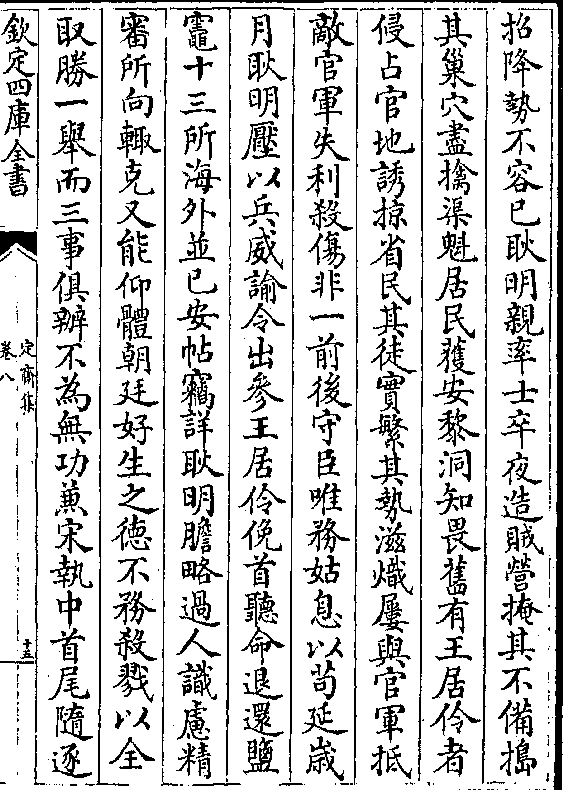 招降勢不容已耿明親率士卒夜造賊營掩其不備搗
其巢穴盡擒渠魁居民獲安黎洞知畏舊有王居伶者
侵占官地誘掠省民其徒實繁其勢滋熾屢與官軍抵
敵官軍失利殺傷非一前後守臣唯務姑息以苟延歲
月耿明壓以兵威諭令出參王居伶俛首聽命退還鹽
竈十三所海外並已安帖竊詳耿明膽略過人識慮精
審所向輙克又能仰體朝廷好生之德不務殺戮以全
取勝一舉而三事俱辦不為無功兼宋執中首尾隨逐
欽定四庫全書
定齋集
卷八
十三